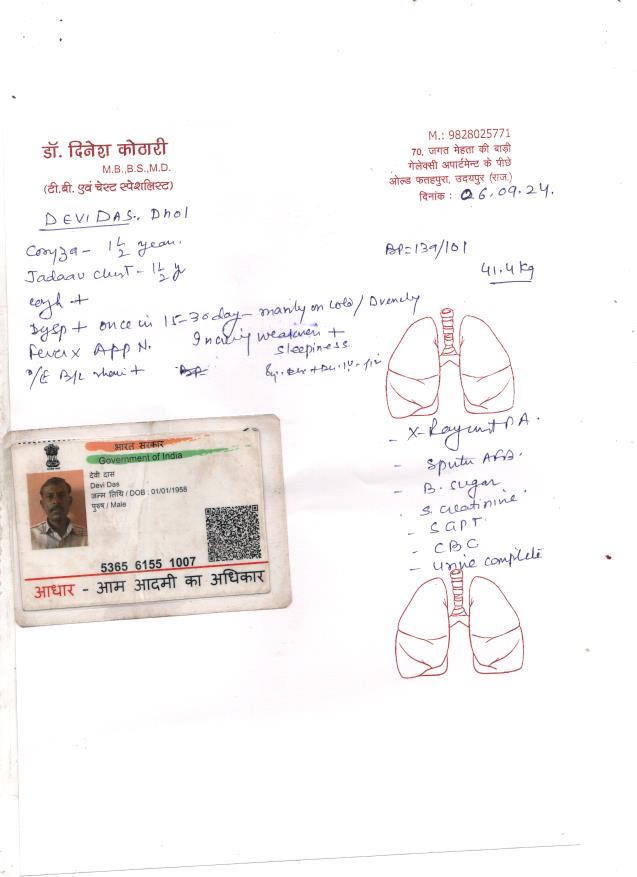 डॉ. दिनेश कोठारी
M.B.,B.S.,M.D.
(टी.बी. एवं चेस्ट स्पेशलिस्ट)
M.: 9828025771
70, जगत मेहता की बाड़ी
गेलेक्सी अपार्टमेन्ट के पीछे
ओल्ड फतहपुरा, उदयपुर (राज.)
दिनांक : 06.09.24.
DEVIDAS., Dhol
Coryza - 1 1/2 year.
chest - 1 1/2 y
cough +
BP=139/101
41.4 kg
Dysp + once in 15-30 day - mainly on cold /
Fever x App N. weakness +
Sleepiness.
O/E B/L +
- X-Ray PA.
- Sputu AFB.
- B. Sugar
S. creatinine
- SGPT.
- CBC
- Urine complete
भारत सरकार
Government of India
देवी दास
Devi Das
जन्म तिथि / DOB : 01/01/1958
पुरुष / Male
5365 6155 1007
आधार - आम आदमी का अधिकार